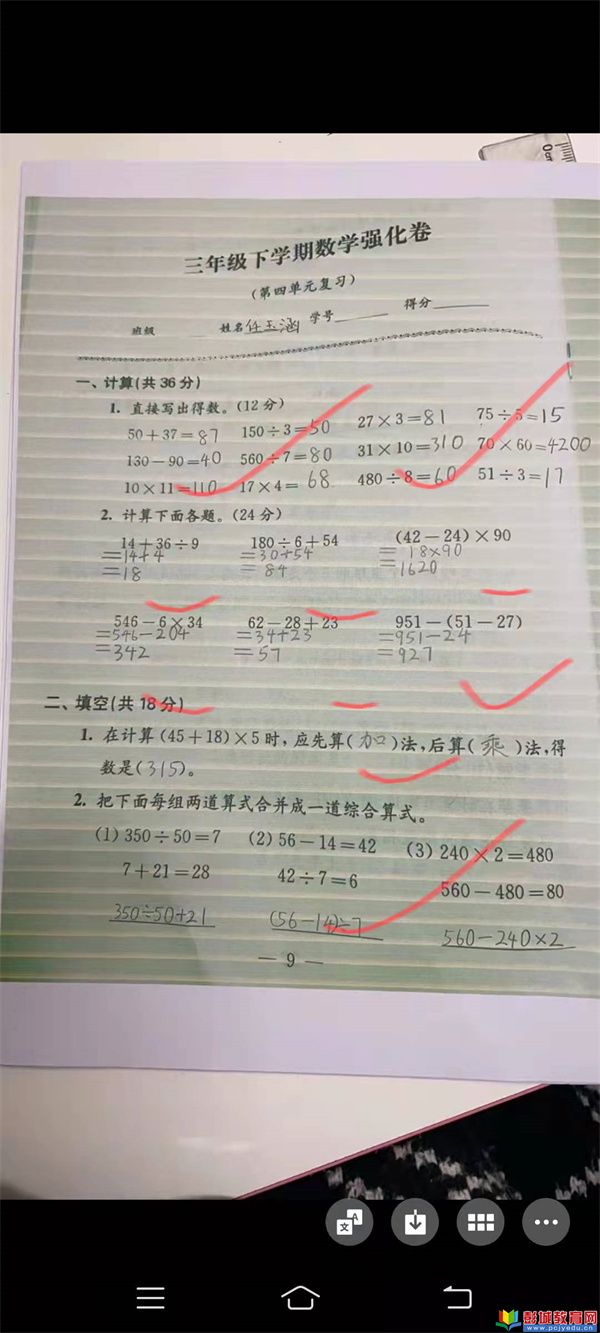 三年级下学期数学强化卷
(第四单元复习)
班级 姓名任玉涵 学号 得分
一、计算(共36分)
1. 直接写出得数。(12分)
50+37=87 150÷3=50 27×3=81 75÷5=15
130-90=40 560÷7=80 31×10=310 70×60=4200
10×11=110 17×4=68 480÷8=60 51÷3=17
2. 计算下面各题。(24分)
14+36÷9 180÷6+54 (42-24)×90
=14+4 =30+54 =18×90
=18 =84 =1620
546-6×34 62-28+23 951-(51-27)
=546-204 =34+23 =951-24
=342 =57 =927
二、填空(共18分)
1. 在计算(45+18)×5时,应先算(加)法,后算(乘)法,得
数是(315)。
2. 把下面每组两道算式合并成一道综合算式。
(1) 350÷50=7 (2) 56-14=42 (3) 240×2=480
7+21=28 42÷7=6 560-480=80
350÷50+21 (56-14)÷7 560-240×2
— 9 —
彭城教育网
www.pcjyedu.cn